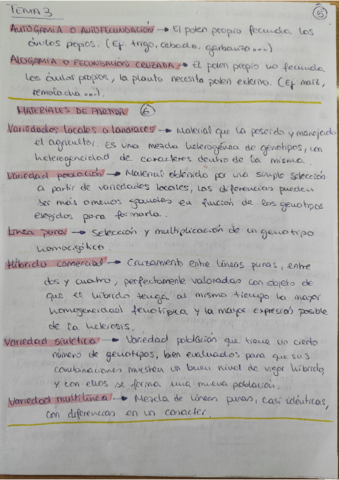 TEMA 3
AUTOGAMIA O AUTOFECUNDACIÓN → El polen propio fecunda los
óvulos propios. (Ej. trigo, cebada, garbanzo ...)
ALOGAMIA O FECUNDACIÓN CRUZADA → El polen propio no fecunda
los óvulos propios, la planta necesita polen externo. (Ej. maíz,
remolacha ...).
MATERIALES DE PARTIDA 6
Variedades locales o landraces → Material que ha poseído y manejado
el agricultor. Es una mezcla heterogénea de genotipos, con
heterogeneidad de caracteres dentro de la misma.
Variedad población → Material obtenido por una simple selección
a partir de variedades locales, las diferencias pueden
ser más o menos grandes en función de los genotipos
elegidos para formarla.
Línea pura → Selección y multiplicación de un genotipo
homocigótico.
Híbrido comercial → Cruzamiento entre líneas puras, entre
dos y cuatro, perfectamente valoradas con objeto de
que el híbrido tenga al mismo tiempo la mayor
homogeneidad fenotípica y la mayor expresión posible
de la heterosis.
Variedad sintética → Variedad población que tiene un cierto
número de genotipos, bien evaluados para que sus
combinaciones muestren un buen nivel de vigor híbrido,
y con ellos se forma una nueva población.
Variedad multilínea → Mezcla de líneas puras, casi idénticas,
con diferencias en un carácter.